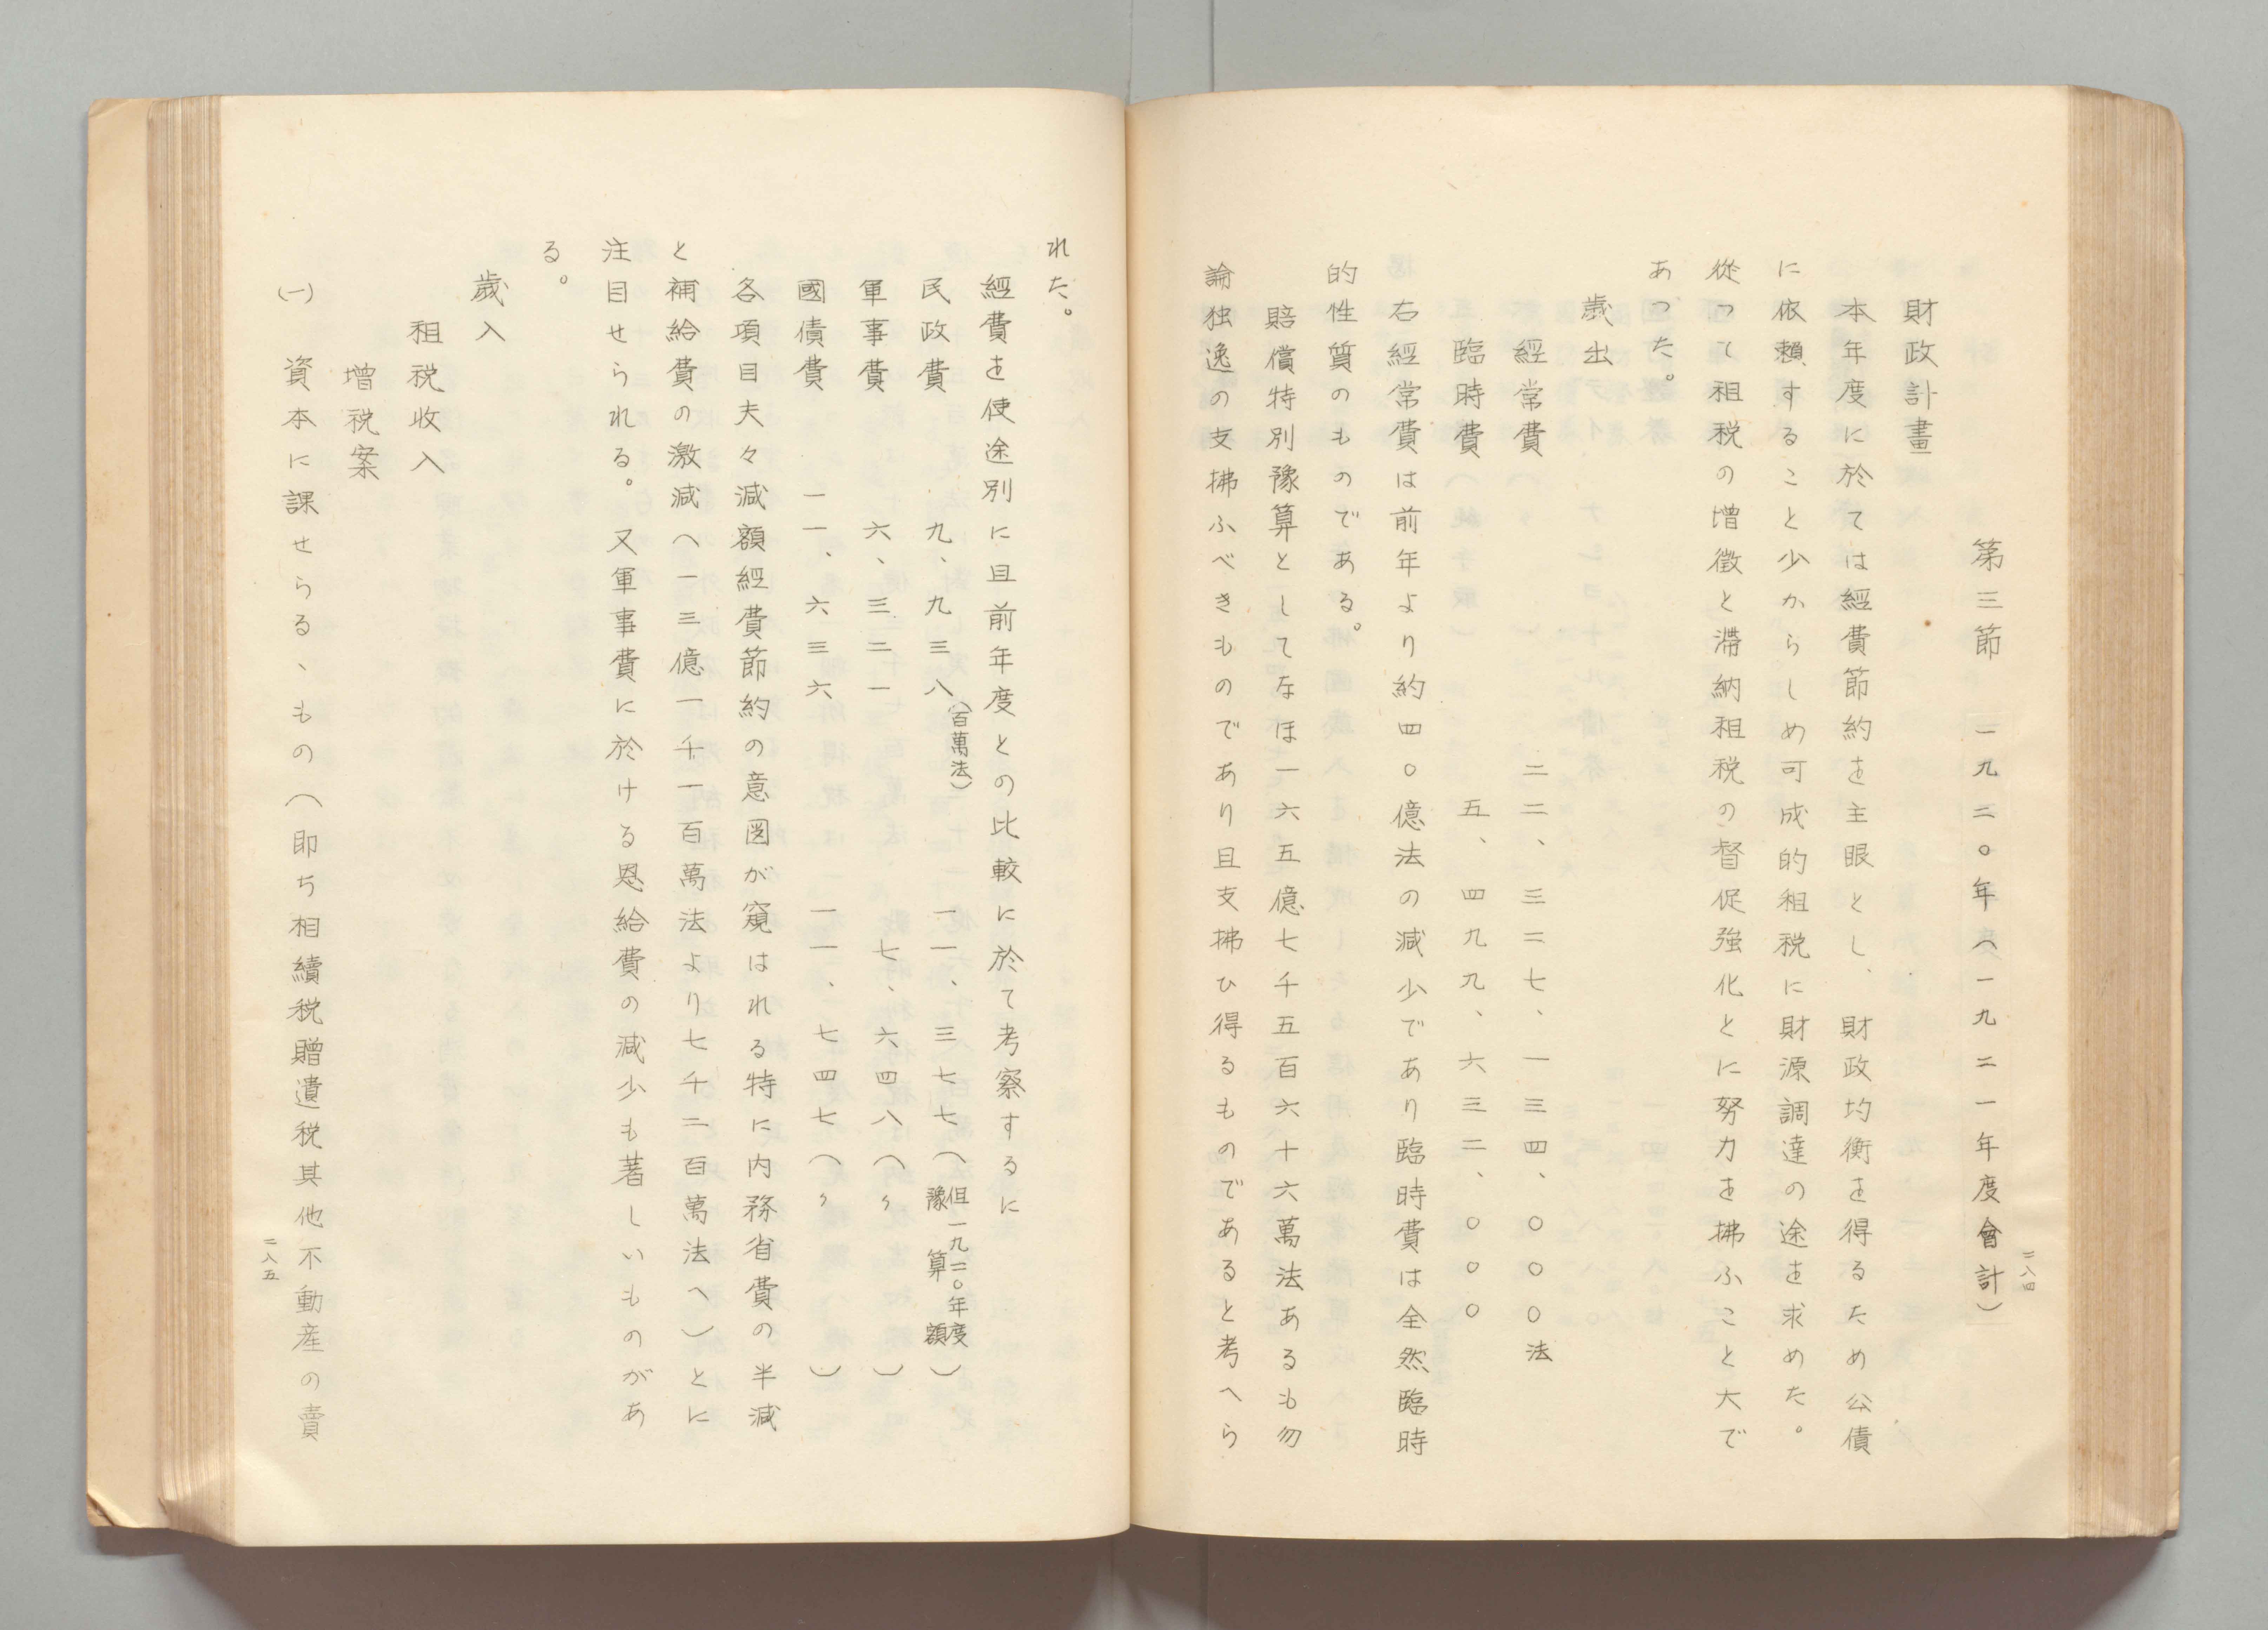 二八四
第三節　一九二〇年（一九二一年度會計）
財政計畫
本年度に於ては經費節約を主眼とし、財政均衡を得るため公債
に依頼すること少からしめ可成的租税に財源調達の途を求めた。
從って租税の増徴と滞納租税の督促強化とに努力を拂ふこと大で
あった。
歳出
經常費　二二、三二七、一三四、〇〇〇法
臨時費　五、四九九、六三二、〇〇〇
右經常費は前年より約四〇億法の減少であり臨時費は全然臨時
的性質のものである。
賠償特別豫算としてなほ一六五億七千五百六十六萬法あるも勿
論独逸の支拂ふべきものであり且支拂ひ得るものであると考へら
れた。
經費を使途別に且前年度との比較に於て考察するに
民政費　九、九三八（百萬法）　一一、三七七（但一九二〇年度豫算額）
軍事費　六、三二一　七、六四八（〃）
國債費　一一、六三六　一一、七四七（〃）
各項目夫々減額經費節約の意図が窺はれる特に内務省費の半減
と補給費の激減（一三億一千一百萬法より七千二百萬法へ）とに
注目せられる。又軍事費に於ける恩給費の減少も著しいものがあ
る。
歳入
租税收入
増税案
(一)　資本に課せらるゝもの（即ち相續税贈遺税其他不動産の賣
二八五